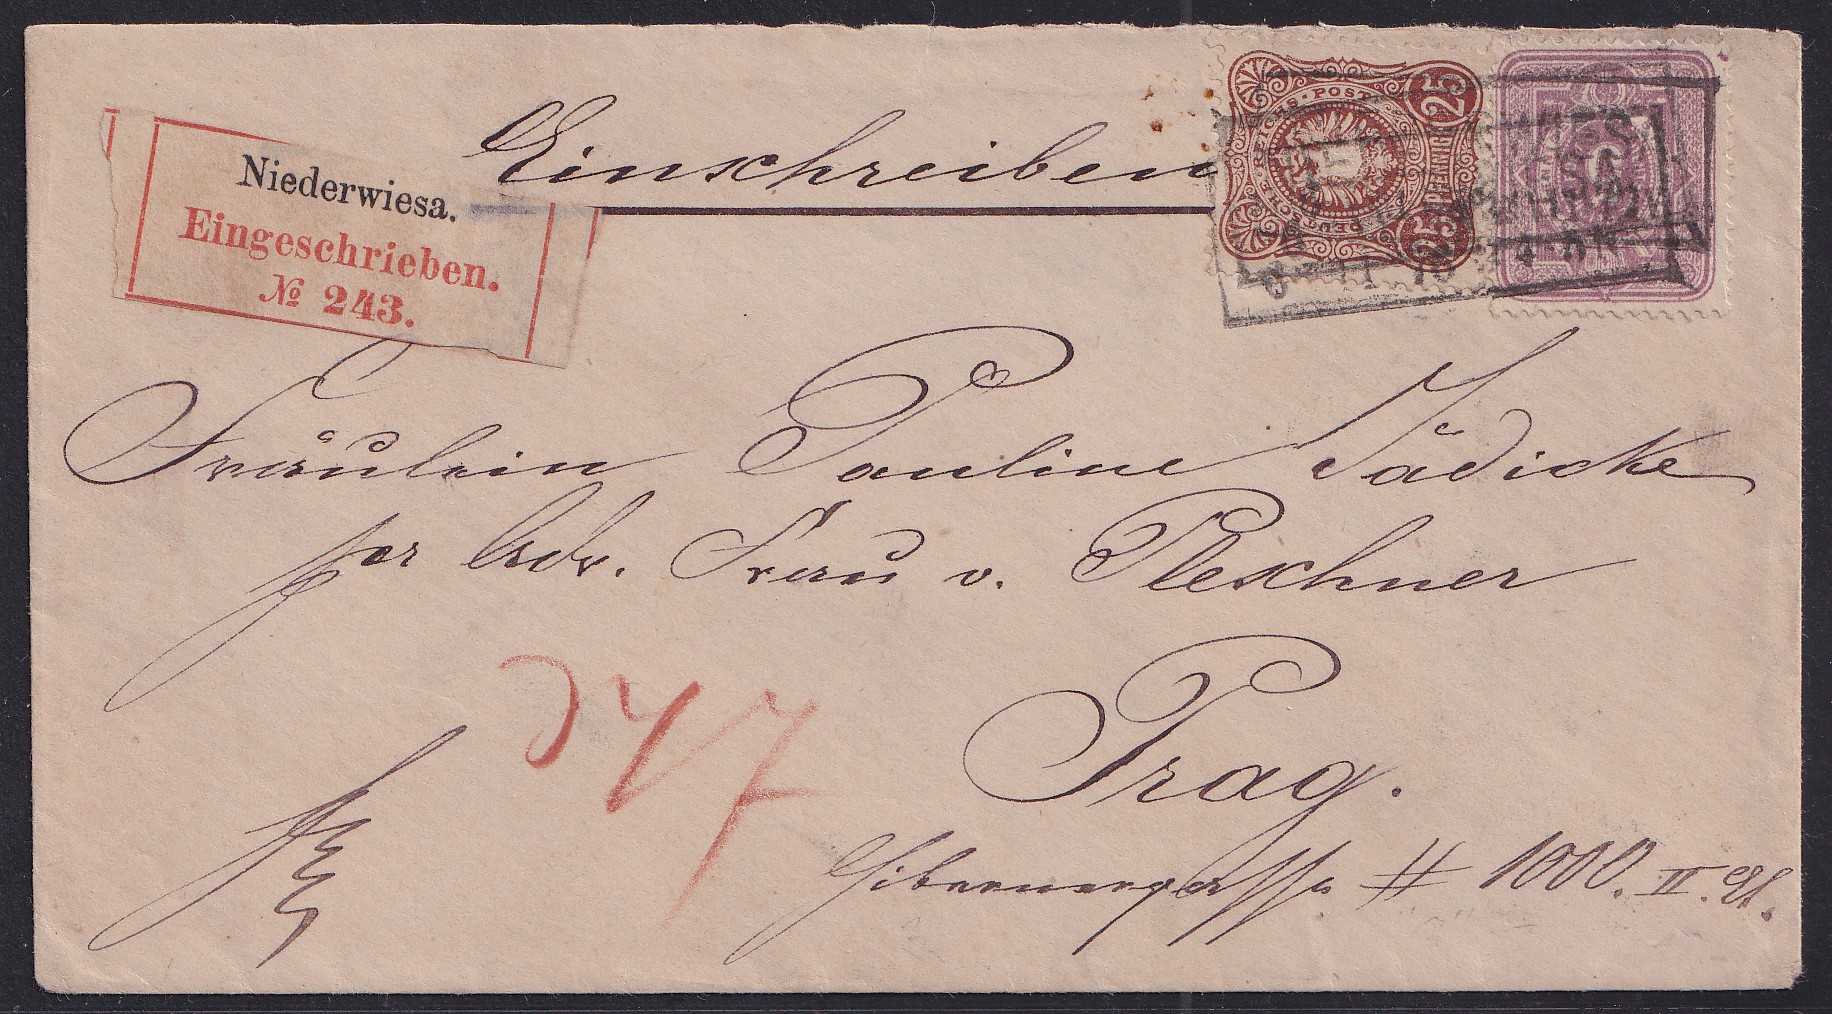 Einschreiben
Niederwiesa.
Eingeschrieben.
№ 243.
DEUTSCHE REICHS-POST
25 PFENNIG 25
Fräulein Pauline Jädicke
per Adr. Frau v. Pleschner
Prag.
# 1000. II. St.